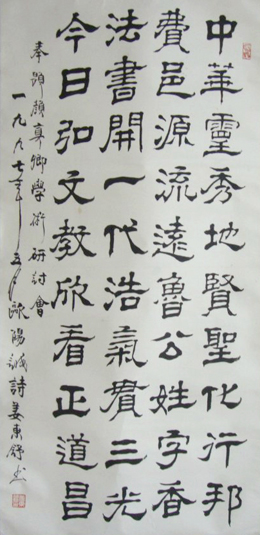 中華靈秀地賢聖化行邦
費邑源流遠魯公姓字香
法書開一代浩氣貫三光
今日弘文教欣看正道昌
奉題顏真卿學術研討會
一九九七年五月歐陽誠詩姜東舒書